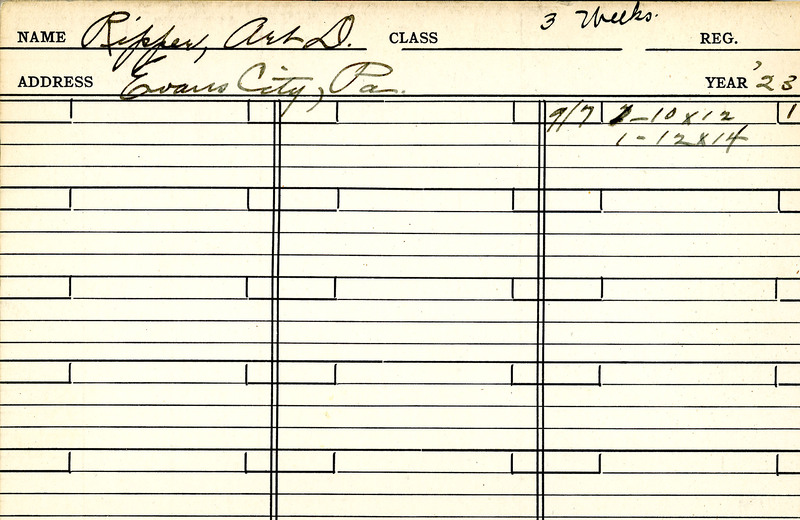 3 Weeks.
NAME Ripper, Art D. CLASS REG.
ADDRESS Evans City, Pa. YEAR '23
9/7 1-10x12 1
1-12x14